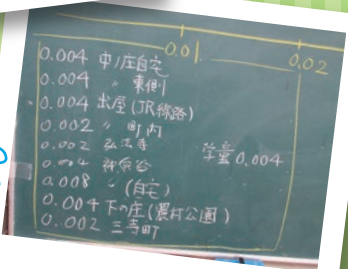 0.01 0.02
0.004 中ノ庄自宅
0.004 〃 東側
0.004 出屋(JR線路)
0.002 〃 町内
0.002 弘法寺
学童 0.004
0.004 神泉谷
0.008 〃 (自宅)
0.004 下の庄(農村公園)
0.002 三寺町